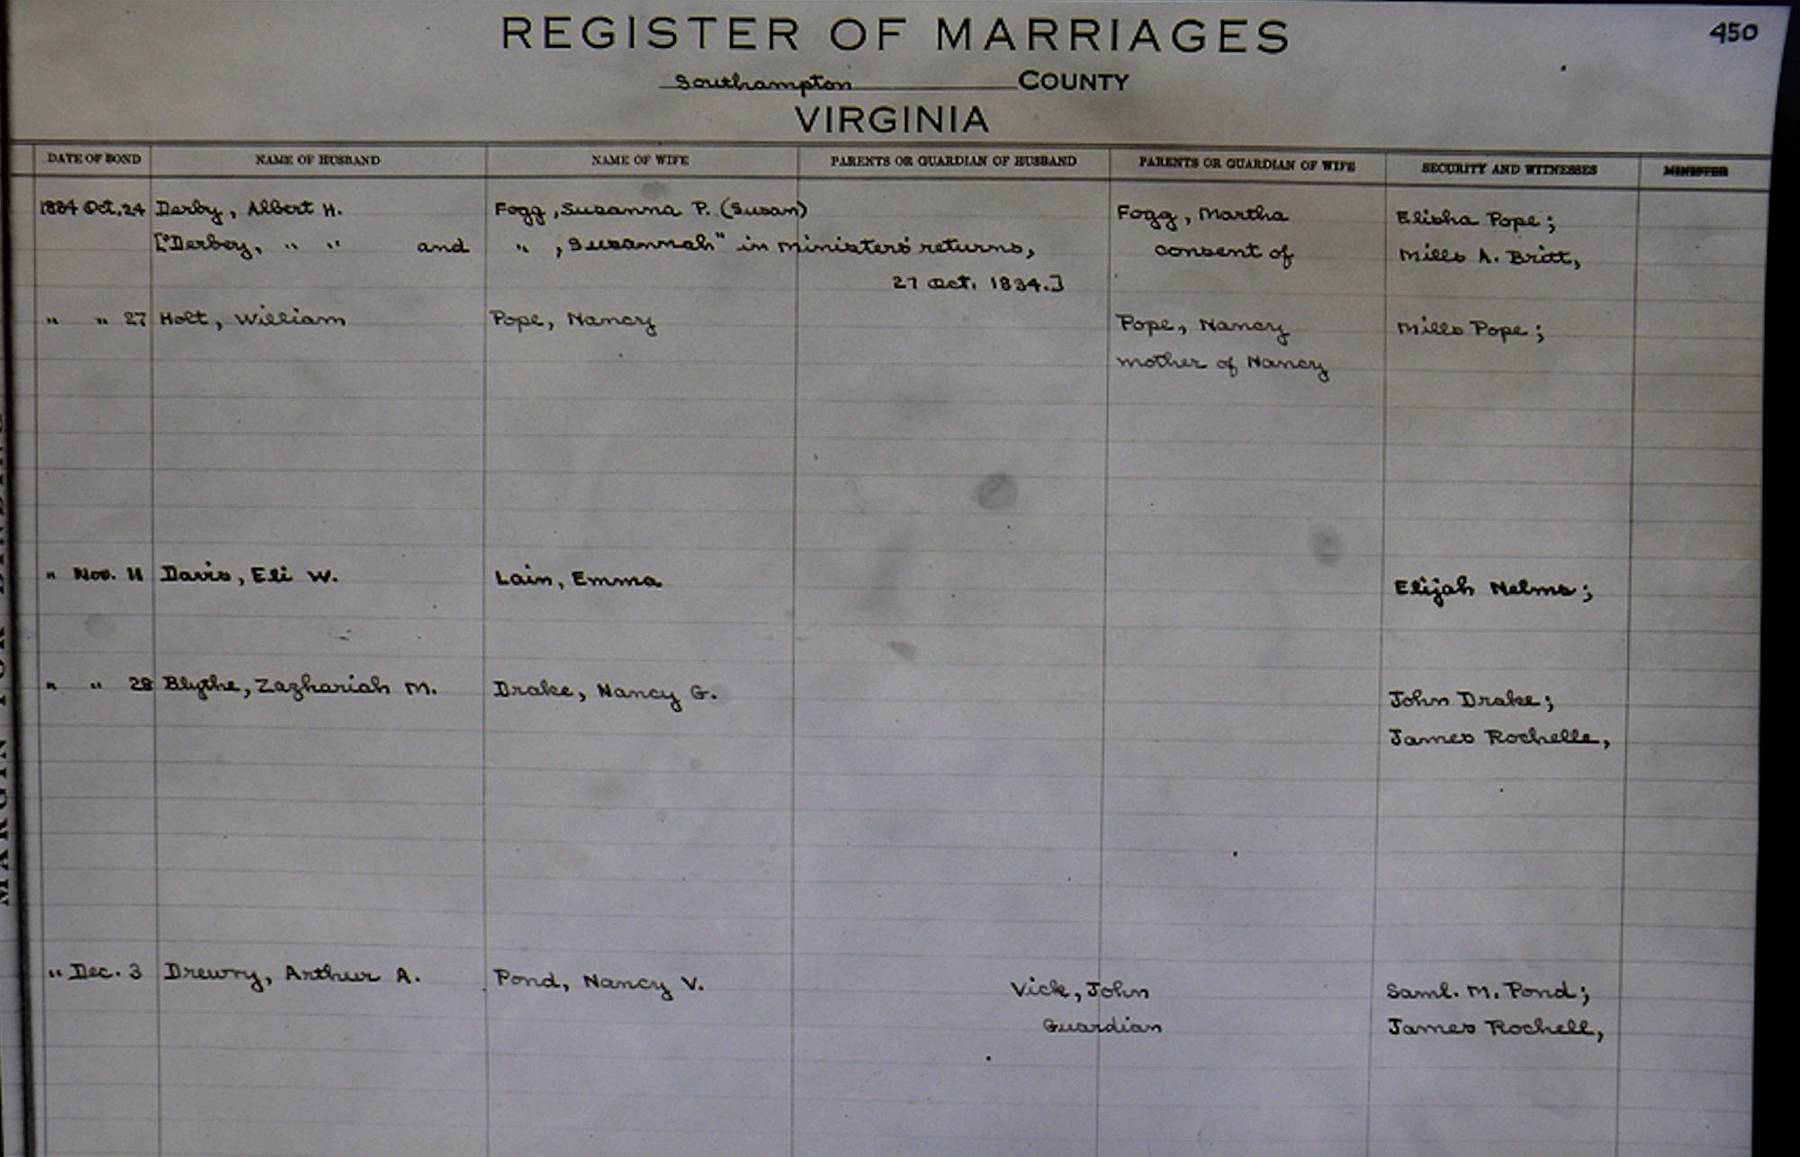 REGISTER OF MARRIAGES
450
Southampton COUNTY
VIRGINIA
DATE OF BOND NAME OF HUSBAND NAME OF WIFE PARENTS OR GUARDIAN OF HUSBAND PARENTS OR GUARDIAN OF WIFE SECURITY AND WITNESSES MINISTER
1834 Oct. 24 Derby, Albert H. Fogg, Susanna P. (Susan) Fogg, Martha Elisha Pope;
["Derbey, " " and " , Susannah" in ministers' returns, consent of Mills A. Britt,
27 Oct. 1834.]
" " 27 Holt, William Pope, Nancy Pope, Nancy Mills Pope;
mother of Nancy
" Nov. 11 Davis, Eli W. Lain, Emma Elijah Nelms;
" " 28 Blythe, Zazhariah M. Drake, Nancy G. John Drake;
James Rochelle,
" Dec. 3 Drewry, Arthur A. Pond, Nancy V. Vick, John Saml. M. Pond;
Guardian James Rochell,
MARGIN FOR BINDING